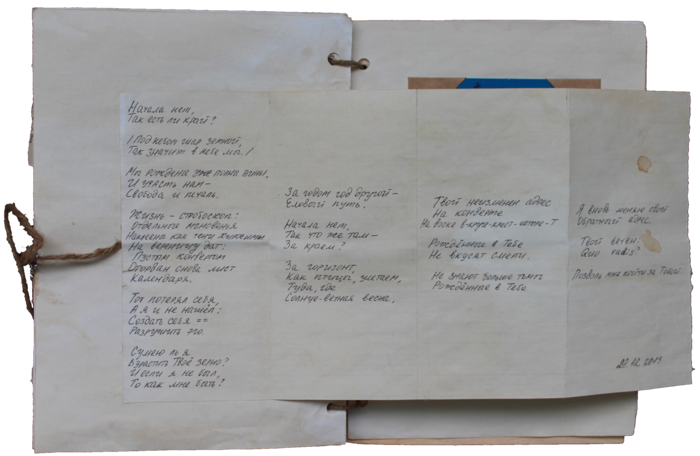 Начала нет,
Так есть ли край?
Под небом шар земной,
Так значит в небе мы.
Мы рождены уже
И участь нам –
Свобода и печаль.
Жизнь – стробоскоп:
Отдельные мгновенья
Нанизаны как
На вереницу дат:
Пустой конвертик
Оторван снова лист
Календаря.
Ты потерял себя,
А я и не нашёл:
Создать себя ==
Разрушить эго.
Сумею ль я
Взрастить Твоё зерно?
И если я не был,
То как мне быть?
За годом год другой –
Еловый путь.
Начала нет,
Так что же там –
За краем?
За горизонт,
Как птицы, улетаем,
Туда, где
Солнце-ветная весна.
Твой неизменен адрес
На конверте
На доске
Рождённые в Тебе
Не вкусят смерти.
Не знают больше тьмы
Рождённые в Тебе.
А вновь меняю свой
Обратный адрес.
Твой вечен.
Quo vadis?
Позволь мне пойти за Тобой.
22.12.2019